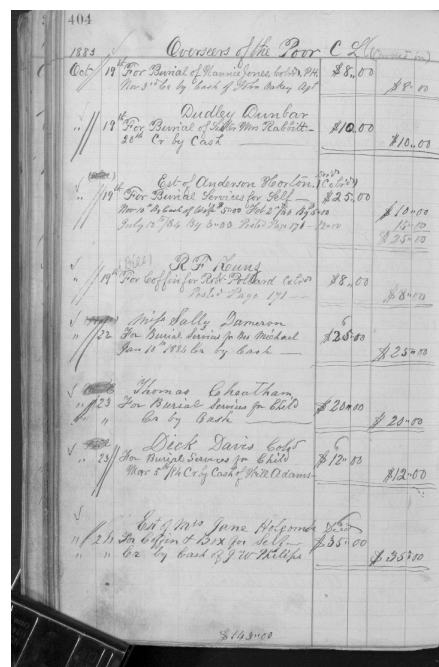 404
1883 Overseers of the Poor C L
Oct 19th For Burial of Nannie Jones, Col'd, P.H. $8.00
Nov 3rd Cr by Cash of John Oakey Agt $8.00
Dudley Dunbar
" 19th For Burial of Sister Mrs Rabbitt $10.00
20th Cr by Cash $10.00
Est of Anderson Horton (Col'd)
" 19th For Burial Services for Self $25.00
Nov 10th By Cash of $10.00
July 12th /84 By Posted Page 171 15.00
$25.00
R F
" 19th For Coffin for Robt Pollard Col'd $8.00
Posted Page 171 $8.00
Miss Sally Dameron
" 22 For Burial Services for Michael $25.00
Jan 10th 1884 Cr by Cash $25.00
Thomas Cheatham
" 23 For Burial Services for Child $20.00
" " Cr by Cash $20.00
Dick Davis Col'd
" 23 For Burial Services for Child $12.00
Mar 5th /84 Cr by Cash of Will Adams $12.00
Est of Mrs Jane Holcomb Dec'd
" 26 For Coffin & Box for Self $35.00
" " Cr by Cash of J W Philips $35.00
$143.00